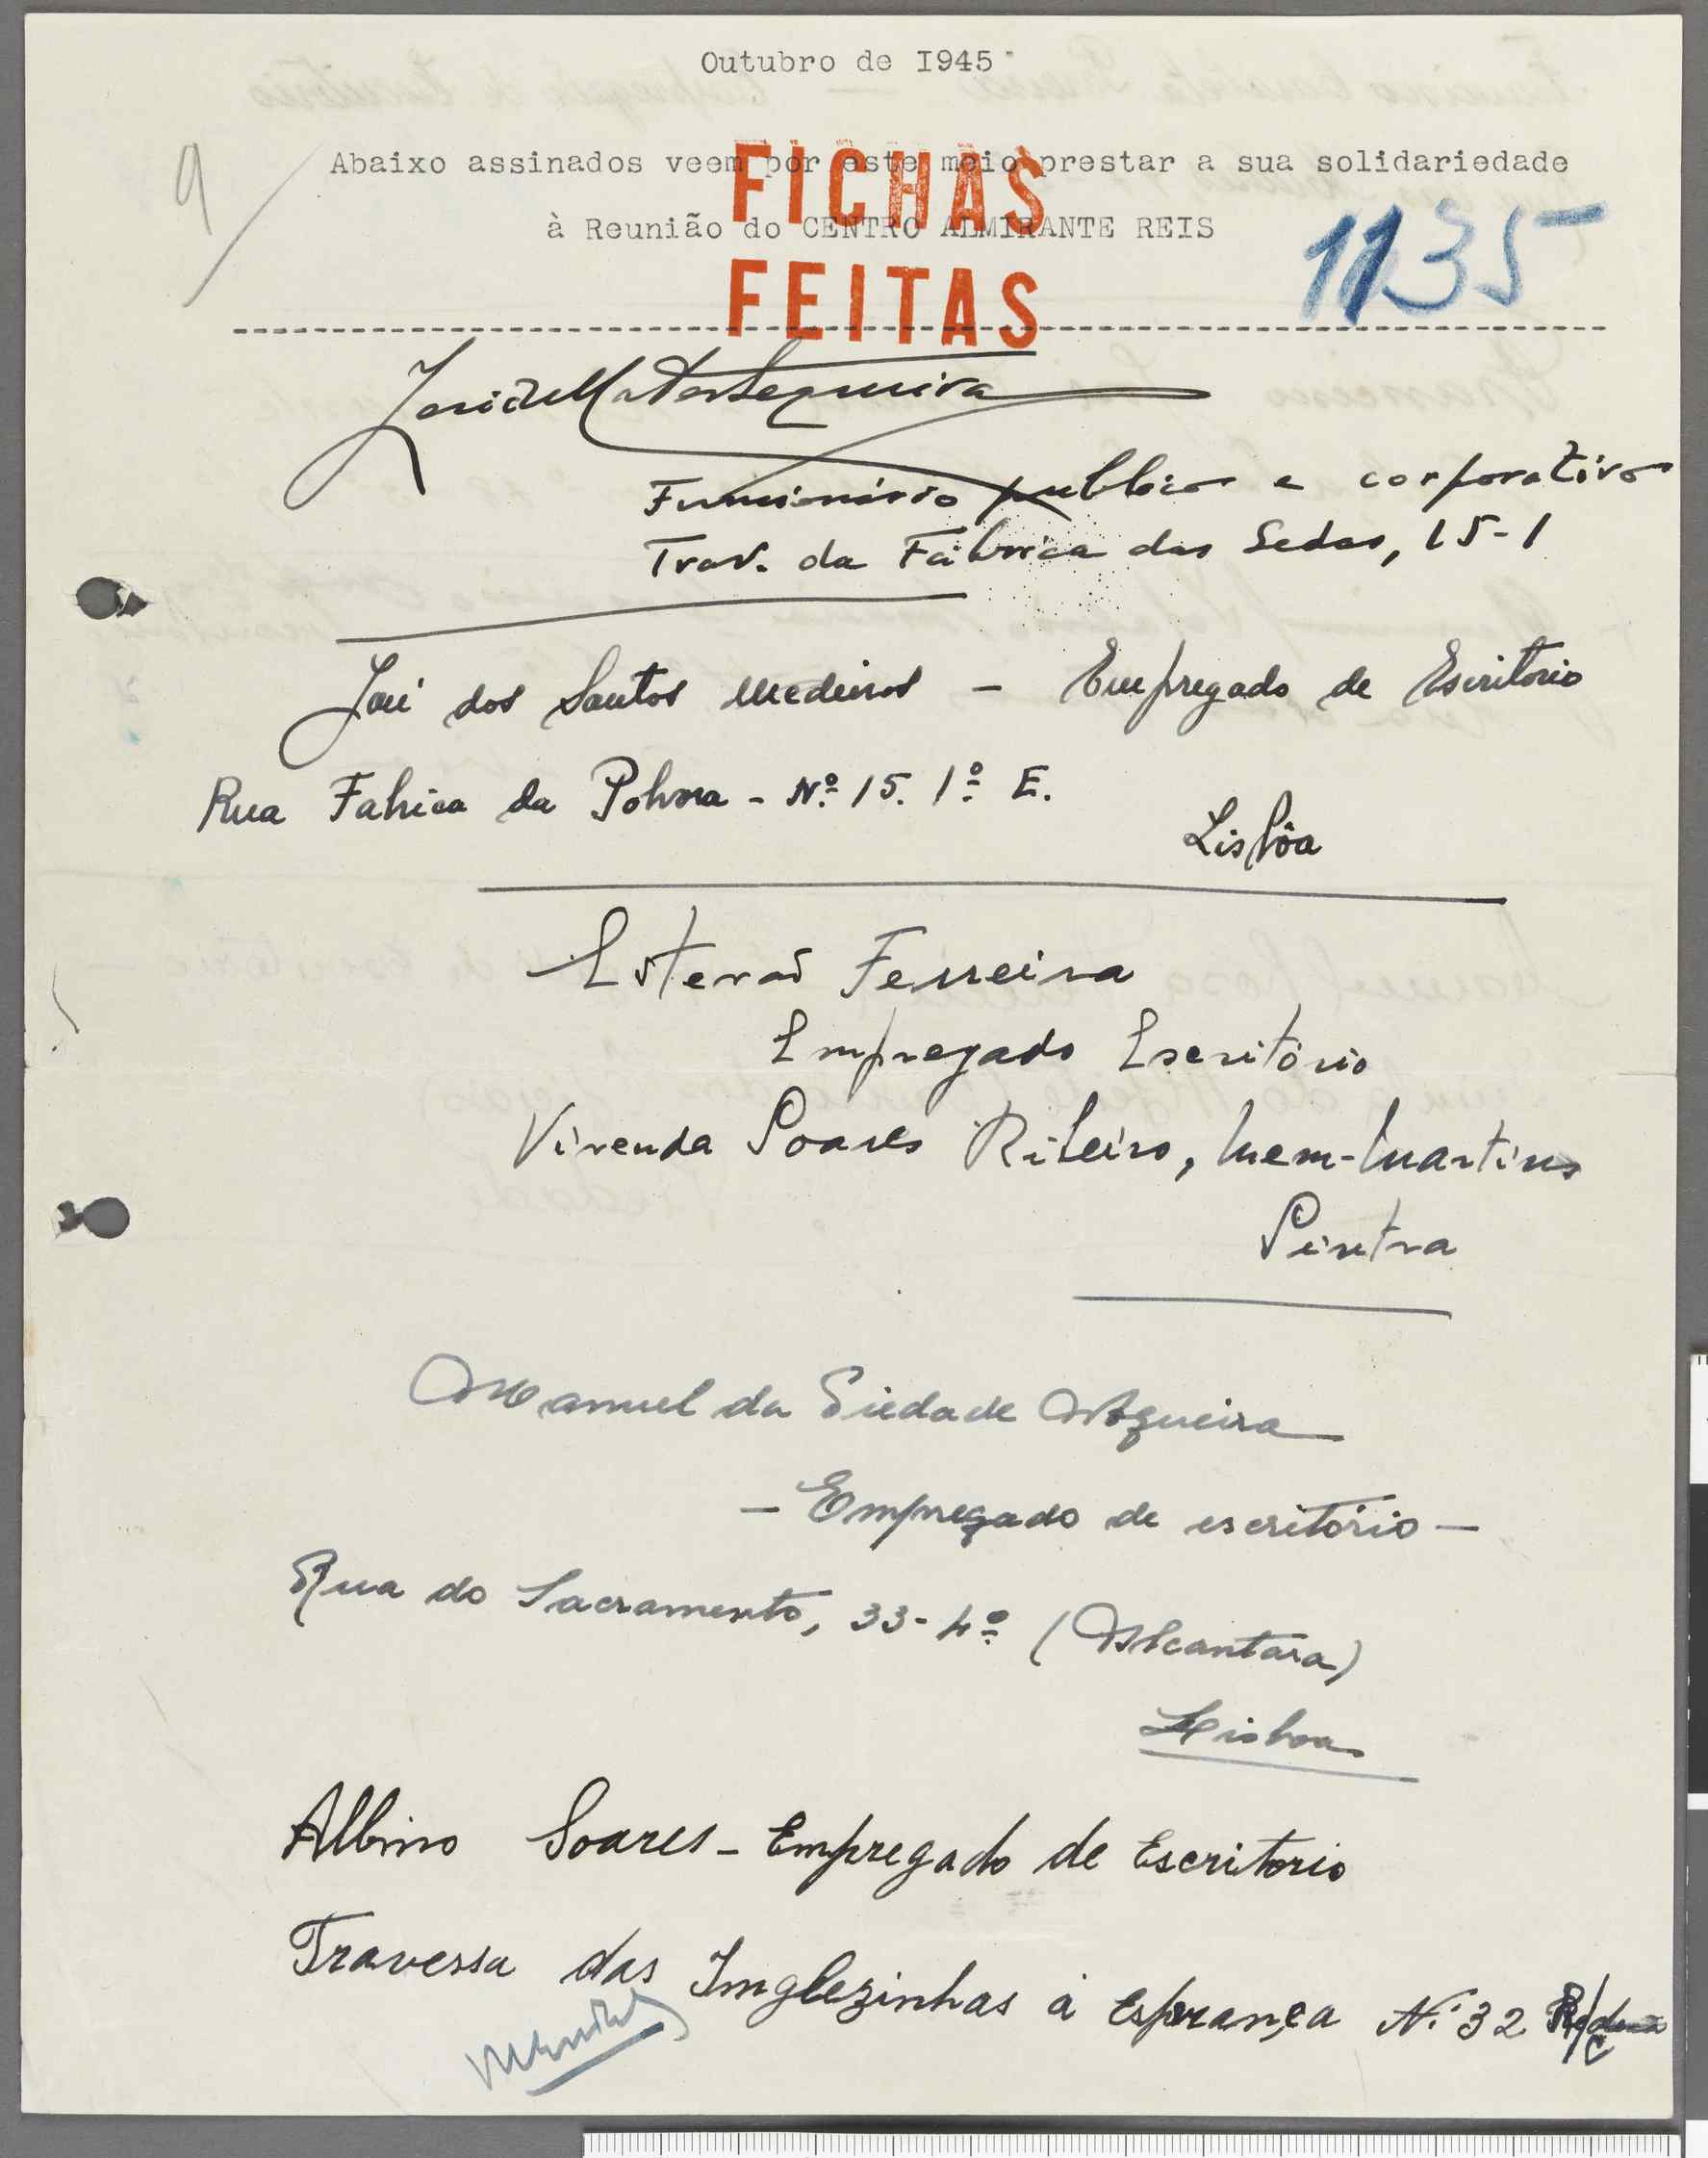 Outubro de I945
9
Abaixo assinados veem por este meio prestar a sua solidariedade
à Reunião do CENTRO ALMIRANTE REIS
FICHAS
FEITAS
1135
José de Matos Sequeira
Funcionário publico e corporativo
Trav. da Fábrica das Sedas, 15-1
José dos Santos Medeiros - Empregado de Escritorio
Rua Fabrica da Polvora - Nº 15. 1º E.
Lisbôa
Estevão Ferreira
Empregado Escritório
Vivenda Soares Ribeiro, Mem-Martins
Sintra
Manuel da Piedade Nogueira
- Empregado de escritório -
Rua do Sacramento, 33-4º (Alcantara)
Lisboa
Albino Soares - Empregado de Escritorio
Travessa das Inglezinhas á Esperança Nº 32 R/c